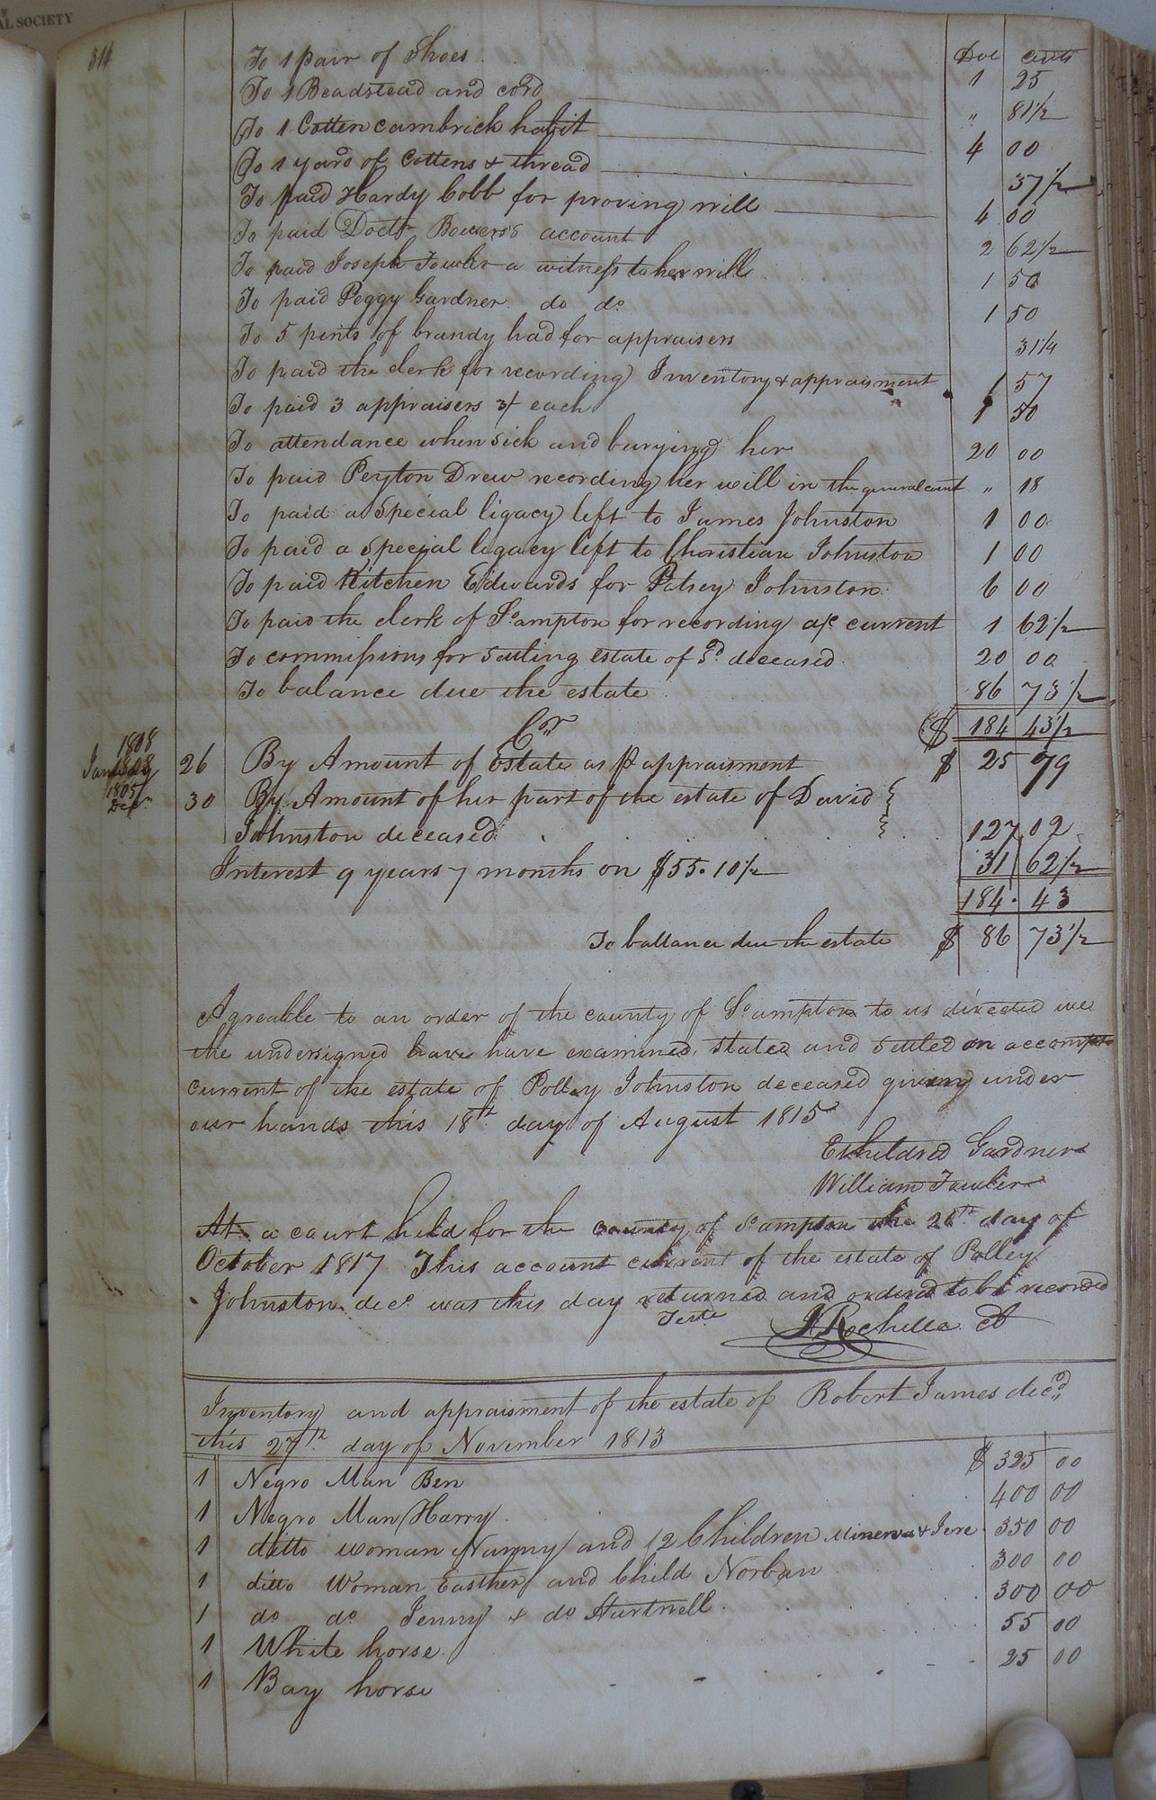 AL SOCIETY
314
Dol cents
To 1 pair of Shoes 1 25
To 1 Beadstead and cord " 81 1/2
To 1 Cotten cambrick habit 4 00
To 1 yard of Cottens & thread 37 1/2
To paid Hardy Cobb for proving will 4 00
To paid Doctr Bowers's account 2 62 1/2
To paid Joseph Fowler a witness to her will 1 50
To paid Peggy Gardner do do 1 50
To 5 pints of brandy had for appraisers 31 1/4
To paid the clerk for recording Inventory & appraisment 1 57
To paid 3 appraisers 3/ each 1 50
To attendance when sick and burying her 20 00
To paid Peyton Drew recording her will in the general court " 18
To paid a Special ligacy left to James Johnston 1 00
To paid a Special legacy left to Christian Johnston 1 00
To paid Kitchen Edwards for Patsey Johnston 6 00
To paid the clerk of So ampton for recording a/c current 1 62 1/2
To commissions for Settling estate of sd deceased 20 00
To balance due the estate 86 73 1/2
Cr $ 184 43 1/2
1808
26 By Amount of Estate as pr appraisment $ 25 79
1805 Decr 30 By Amount of her part of the estate of David
Johnston deceased 127 02
Interest 9 years 7 months on $55.10 1/2 31 62 1/2
184. 43
To ballance due the estate $ 86 73 1/2
Agreable to an order of the county of So ampton to us directed we
the undersigned have have examined, stated and Settled an accompt
current of the estate of Polley Johnston deceased giving under
our hands this 18th day of August 1815
Etheldred Gardner
William Fowler
At a court held for the county of So ampton the 20th day of
October 1817 This account current of the estate of Polley
Johnston decd was this day returned and ordered to be recorded
Teste
J Rochelle Ct
Inventory and appraisment of the estate of Robert James decd
this 27th day of November 1813
1 Negro Man Ben $ 325 00
1 Negro Man Harry 400 00
1 ditto woman Nanny and 2 Children Minerva & Jere 350 00
1 ditto Woman Easther and Child Norban 300 00
1 do do Jenny & do Hartwell 300 00
1 White horse 55 00
1 Bay horse 25 00